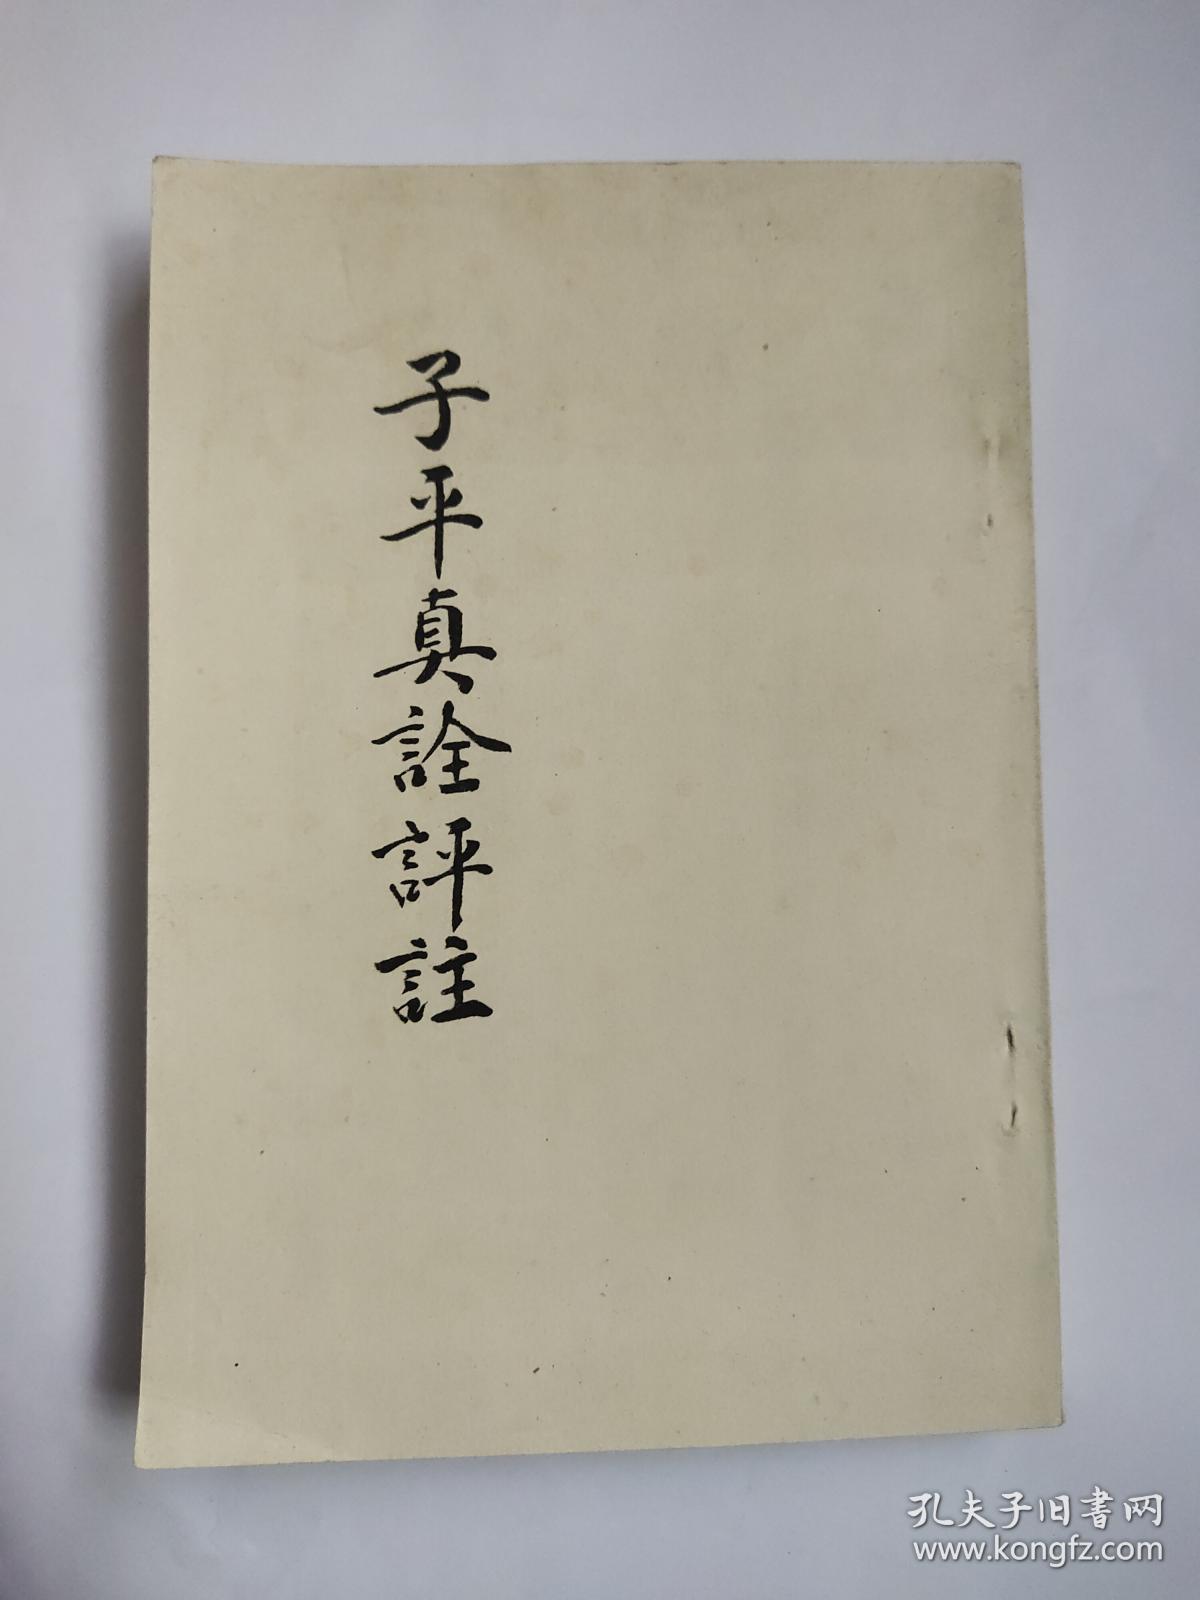 子平真詮評註
孔夫子旧书网
www.kongfz.com